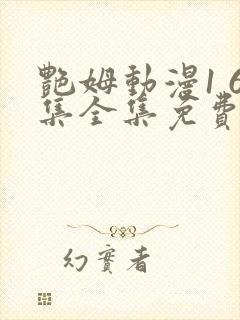 艷姆動漫1 6
集全集免費
幻實者